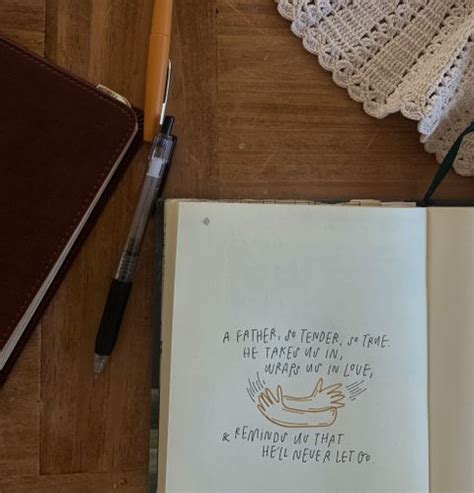 A FATHER, SO TENDER, SO TRUE.
HE TAKES US IN,
WRAPS US IN LOVE,
& REMINDS US THAT
HE'LL NEVER LET GO.